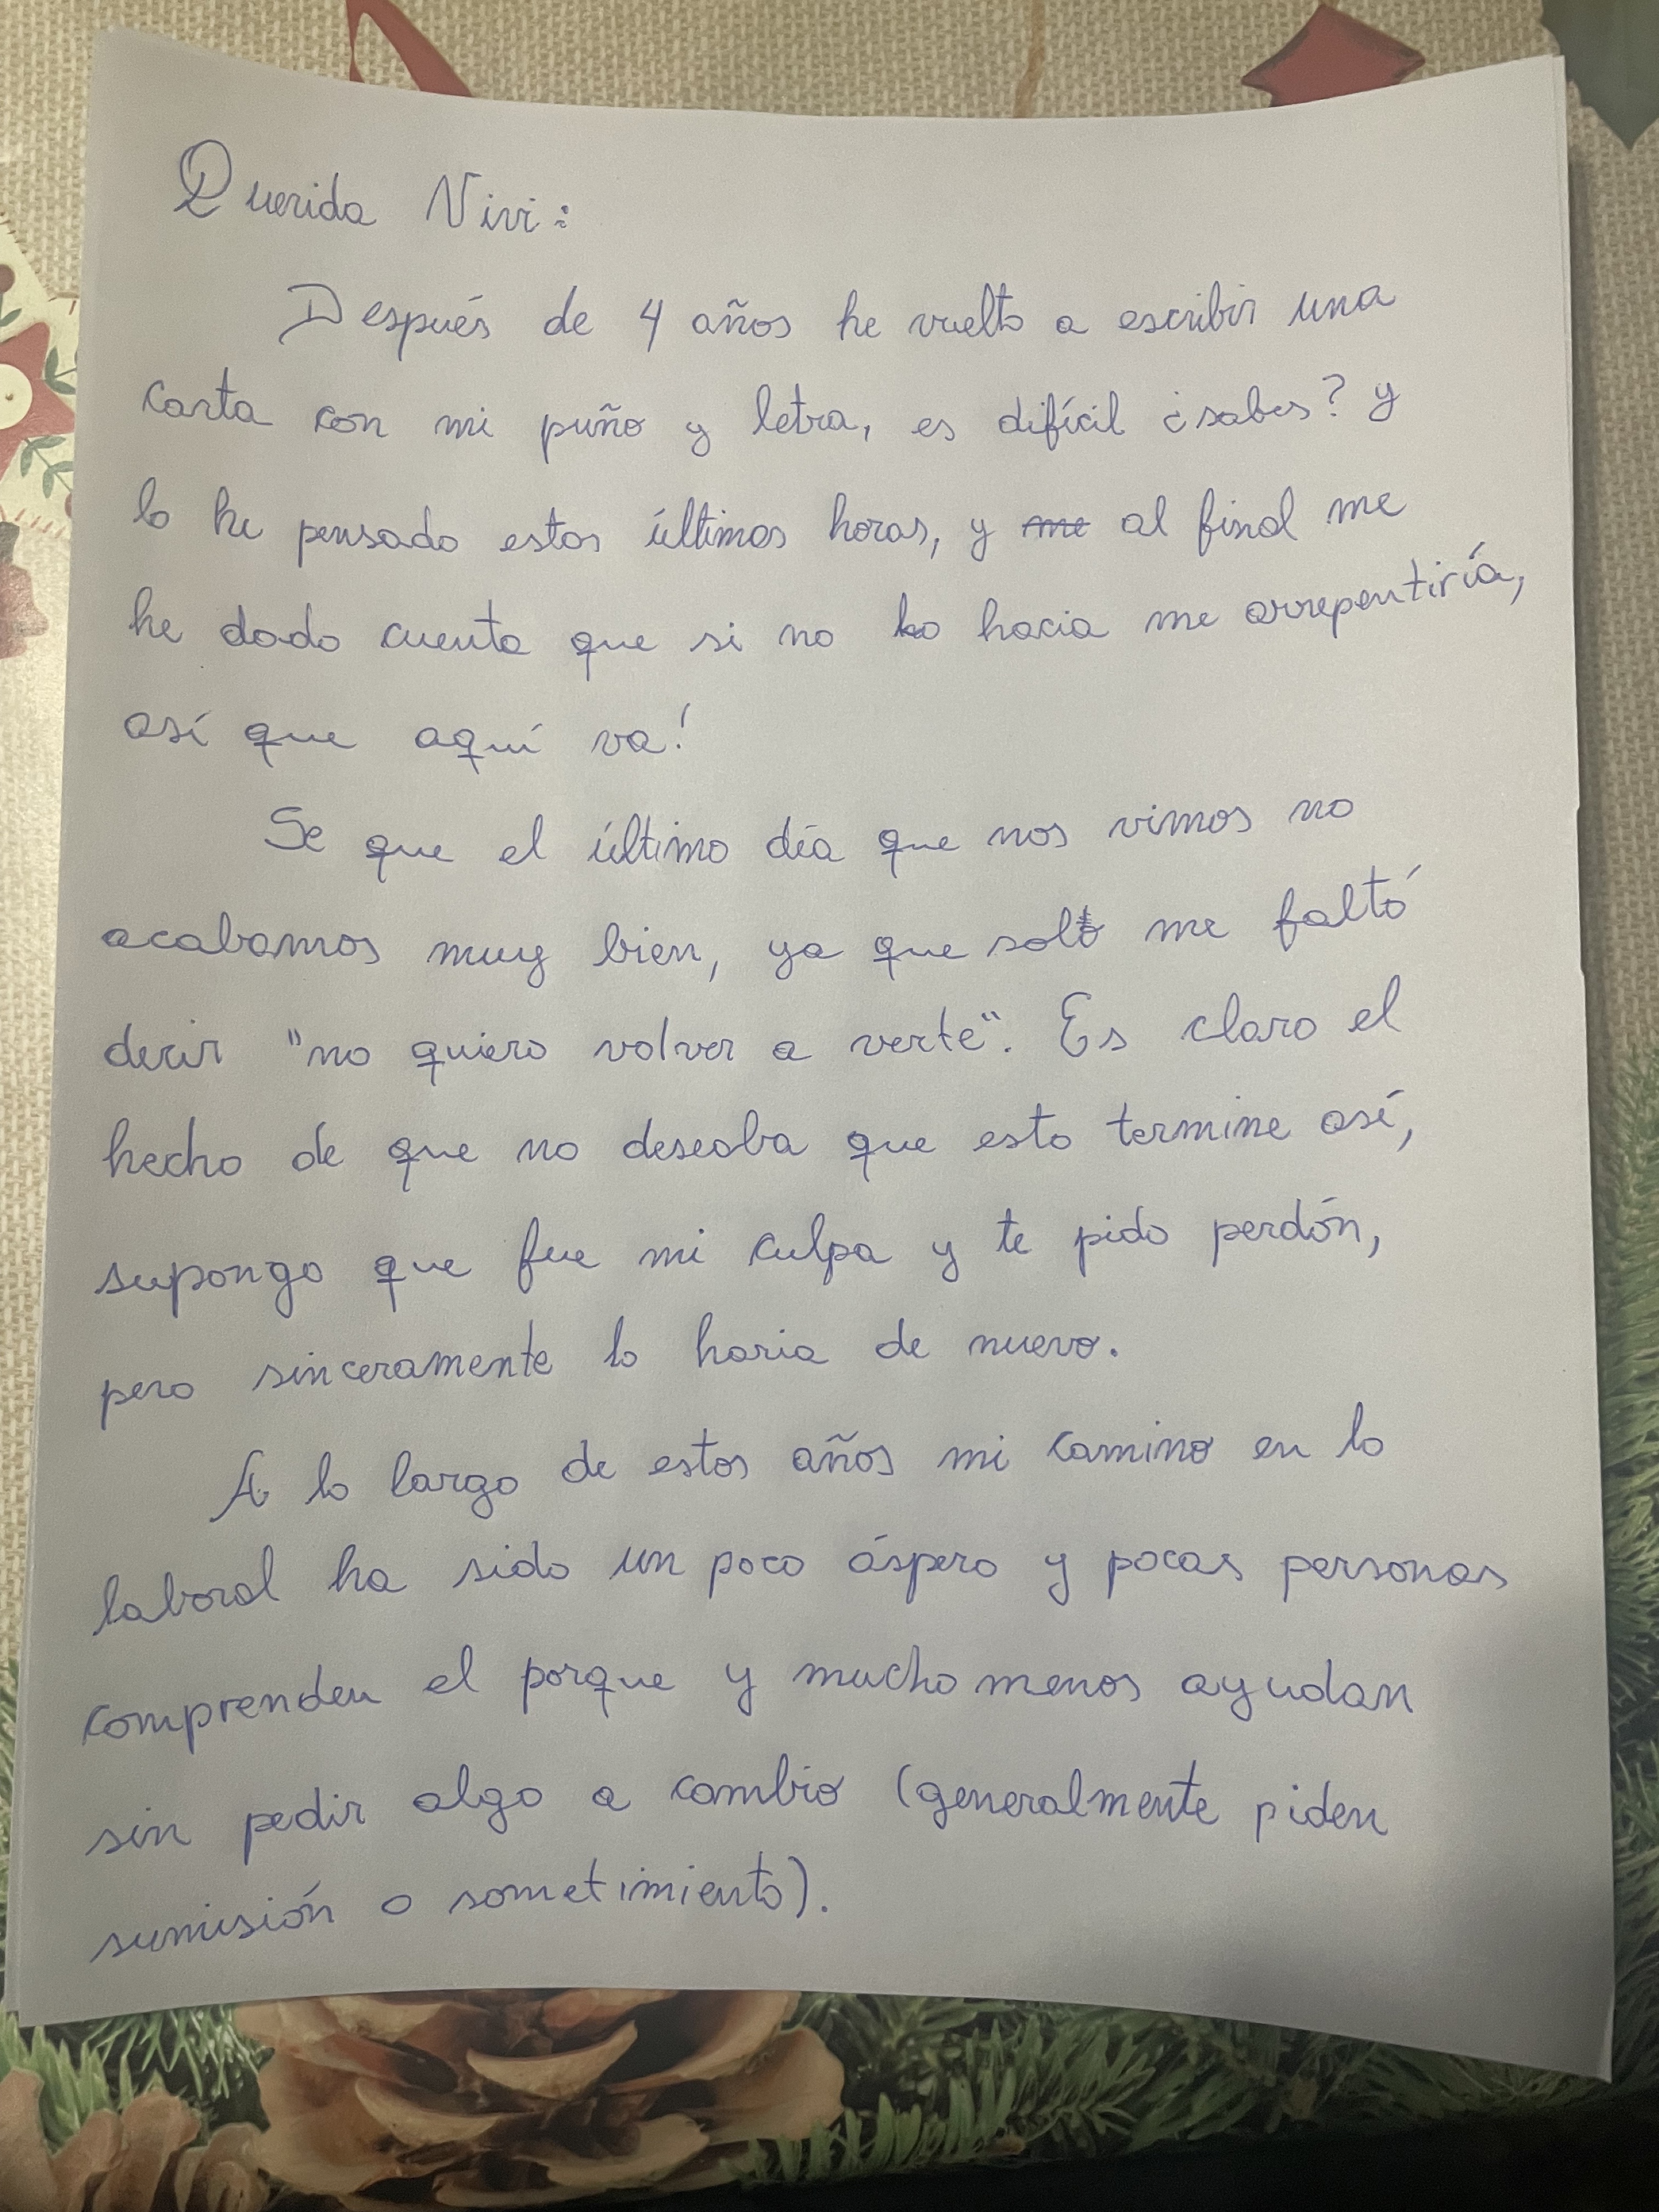 Querida Vivi:
Después de 4 años he vuelto a escribir una
carta con mi puño y letra, es difícil ¿sabes? y
lo he pensado estas últimas horas, y me al final me
he dado cuenta que si no lo hacia me arrepentiría,
así que aquí va!
Se que el último día que nos vimos no
acabamos muy bien, ya que solo me faltó
decir "no quiero volver a verte". Es claro el
hecho de que no deseaba que esto termine así,
supongo que fue mi culpa y te pido perdón,
pero sinceramente lo haria de nuevo.
A lo largo de estos años mi camino en lo
laboral ha sido un poco áspero y pocas personas
comprenden el porque y mucho menos ayudan
sin pedir algo a cambio (generalmente piden
sumisión o sometimiento).